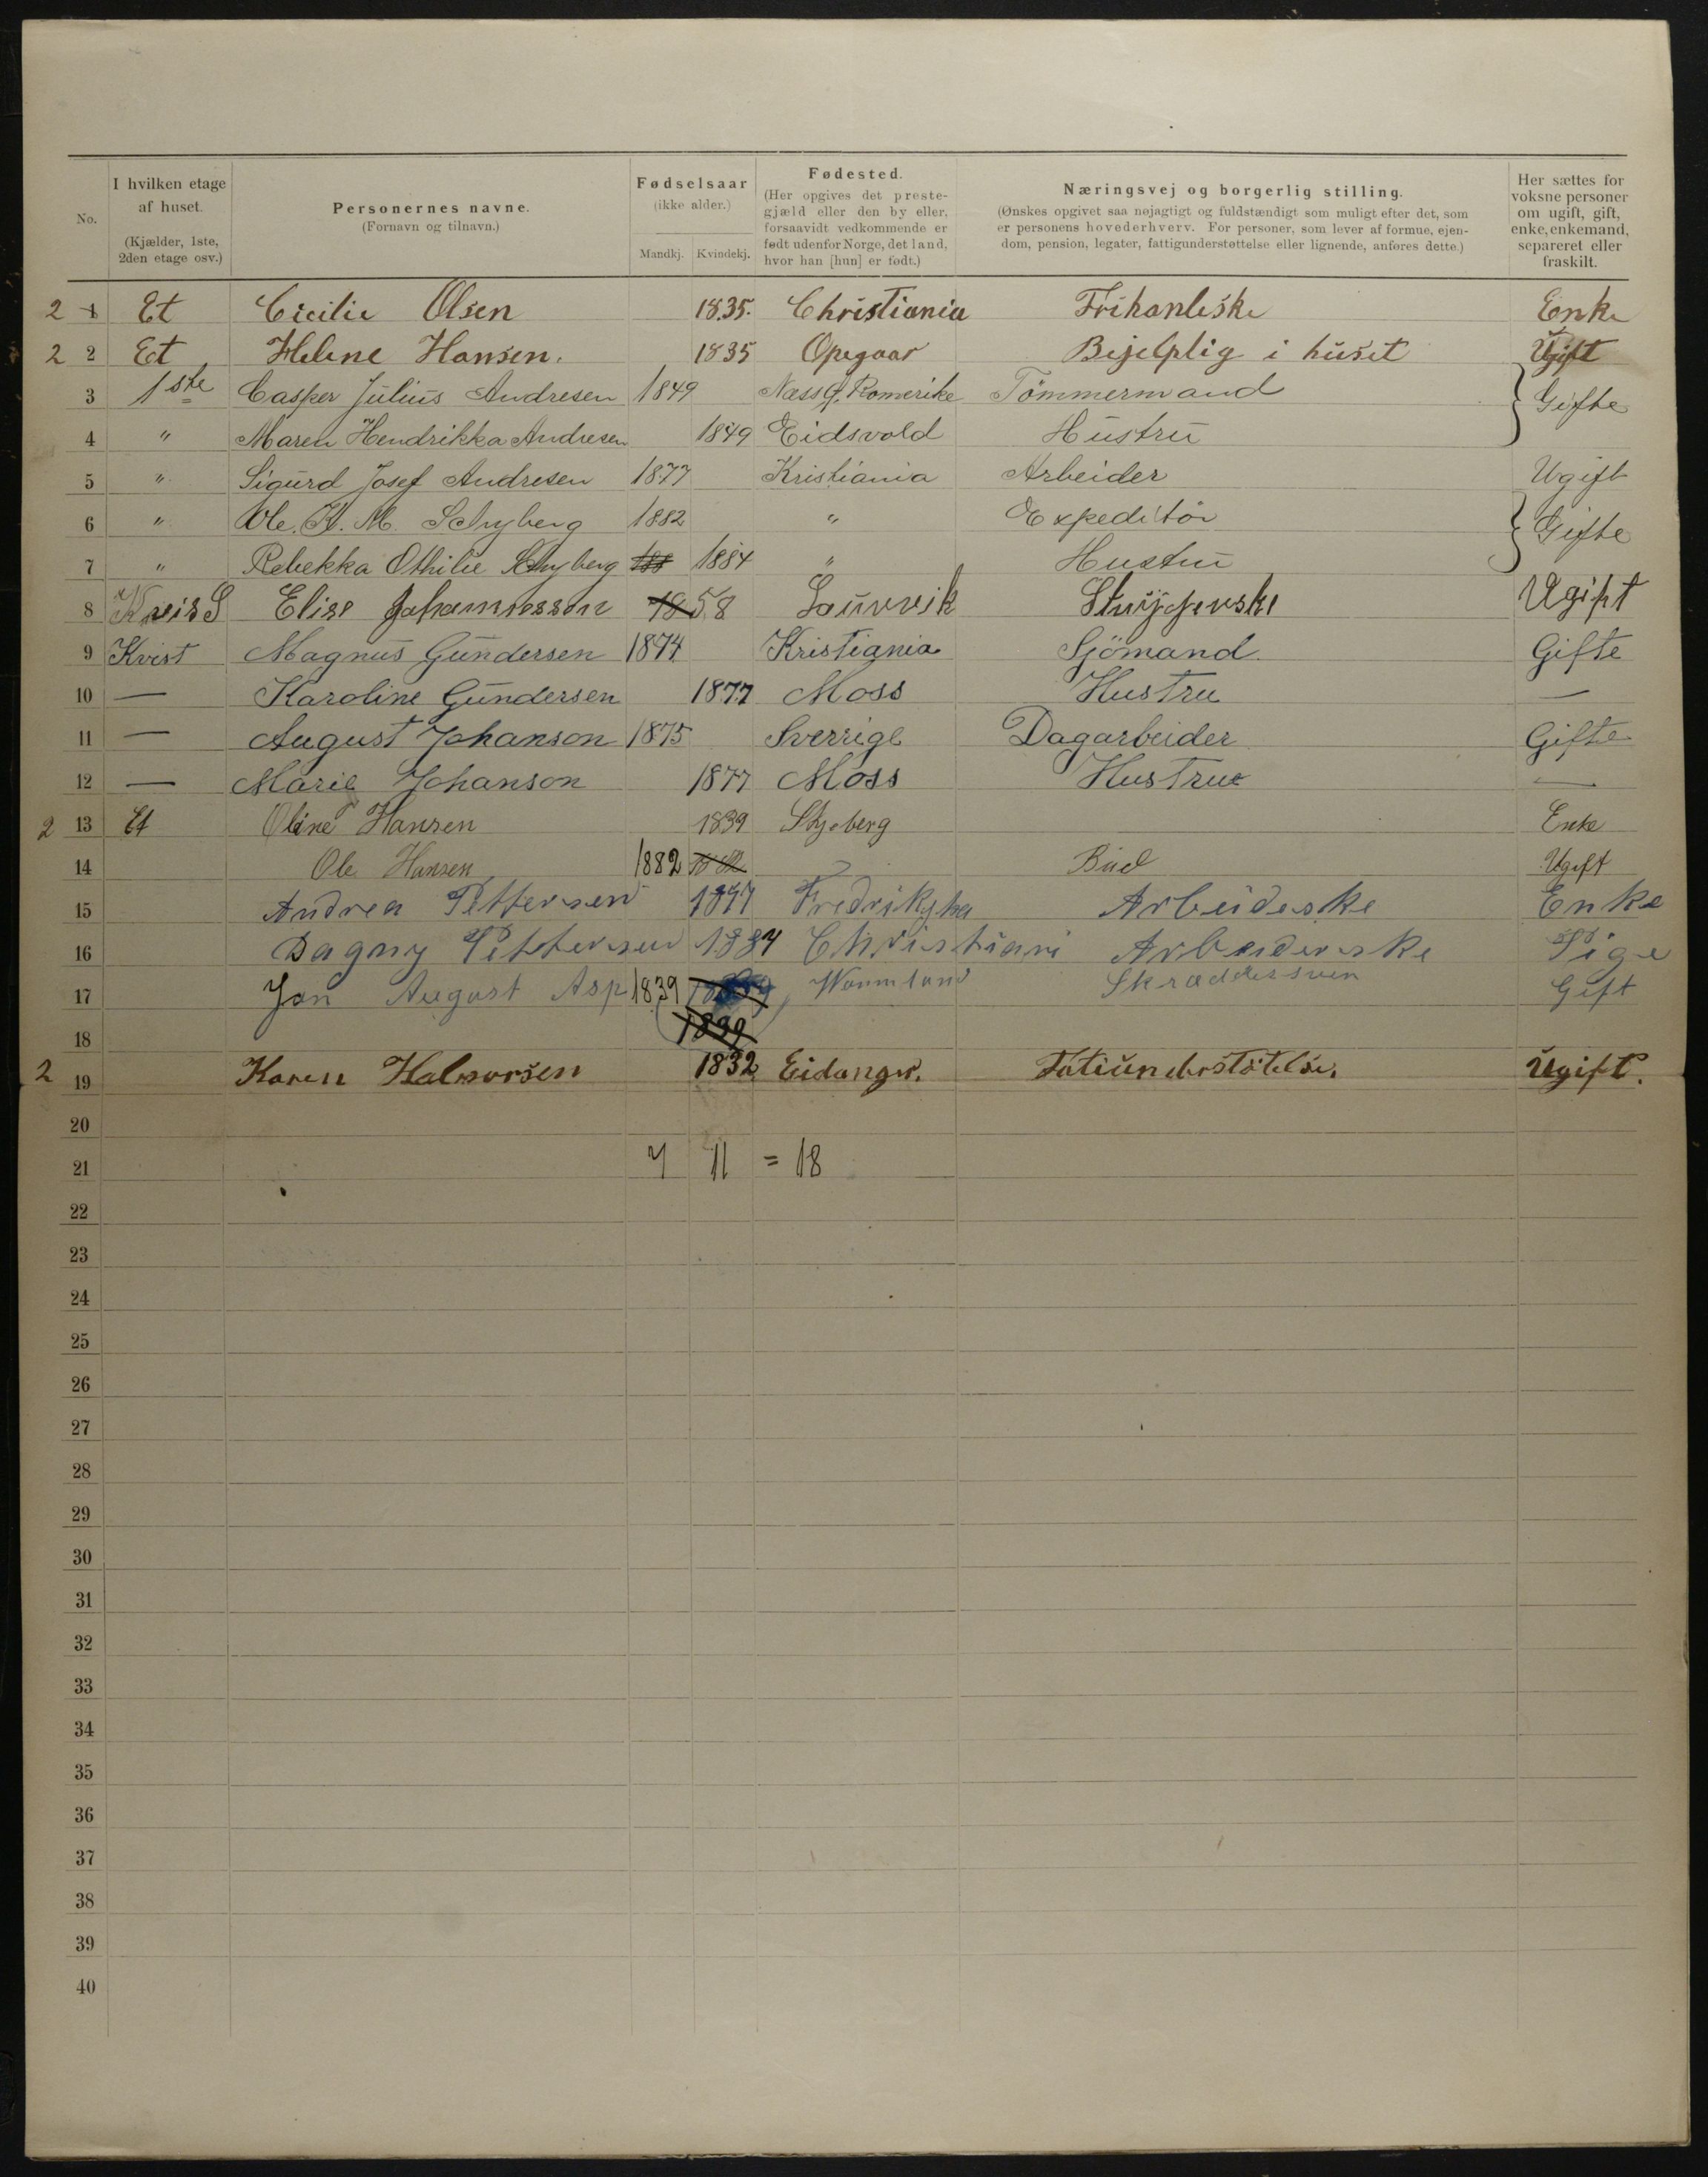 No. I hvilken etage af huset. (Kjælder, 1ste, 2den etage osv.) Personernes navne. (Fornavn og tilnavn.) Fødselsaar (ikke alder.) Mandkj. Kvindekj. Fødested. (Her opgives det prestegjæld eller den by eller, forsaavidt vedkommende er født udenfor Norge, det land, hvor han [hun] er født.) Næringsvej og borgerlig stilling. (Ønskes opgivet saa nøjagtigt og fuldstændigt som muligt efter det, som er personens hovederhverv. For personer, som lever af formue, ejendom, pension, legater, fattigunderstøttelse eller lignende, anføres dette.) Her sættes for voksne personer om ugift, gift, enke, enkemand, separeret eller fraskilt.
2 1 Et Cicilie Olsen 1835. Christiania Frihanleske Enke
2 2 Et Helene Hansen. 1835 Opegaar Bejelplig i huset Ugift
3 1ste Casper Julius Andresen 1849 Næss Romerike Tömmermand } Gifte
4 " Maren Hendrikka Andresen 1849 Eidsvold Hustru
5 " Sigurd Josef Andresen 1877 Kristiania Arbeider Ugift
6 " Ole. H. M. Schyberg 1882 " Expeditör } Gifte
7 " Rebekka Othilie Schyberg 1884 " Hustru
8 Elise Johannesson 1858 Laurvik Ugift
9 Kvist Magnus Gundersen 1874 Kristiania Sjömand. Gifte
10 — Karoline Gundersen 1877 Moss Hustru —
11 — August Johanson 1875 Sverrige Dagarbeider Gifte
12 — Marie Johanson 1877 Moss Hustrue —
2 13 Et Oline Hansen 1839 Skjeberg Enke
14 Ole Hansen 1882 Bud Ugift
15 Andrea Pettersen Arbeideske Enke
16 Dagny Pettersen 1884 Christiani Arbeiderske Pige
17 Jan August Asp 1839 Warmland Skræddersven Gift
18 1839
2 19 Karen Halvorsen 1832 Eidanger. Fatiunderstötelse. Ugift.
20
21 7 11 = 18
22
23
24
25
26
27
28
29
30
31
32
33
34
35
36
37
38
39
40